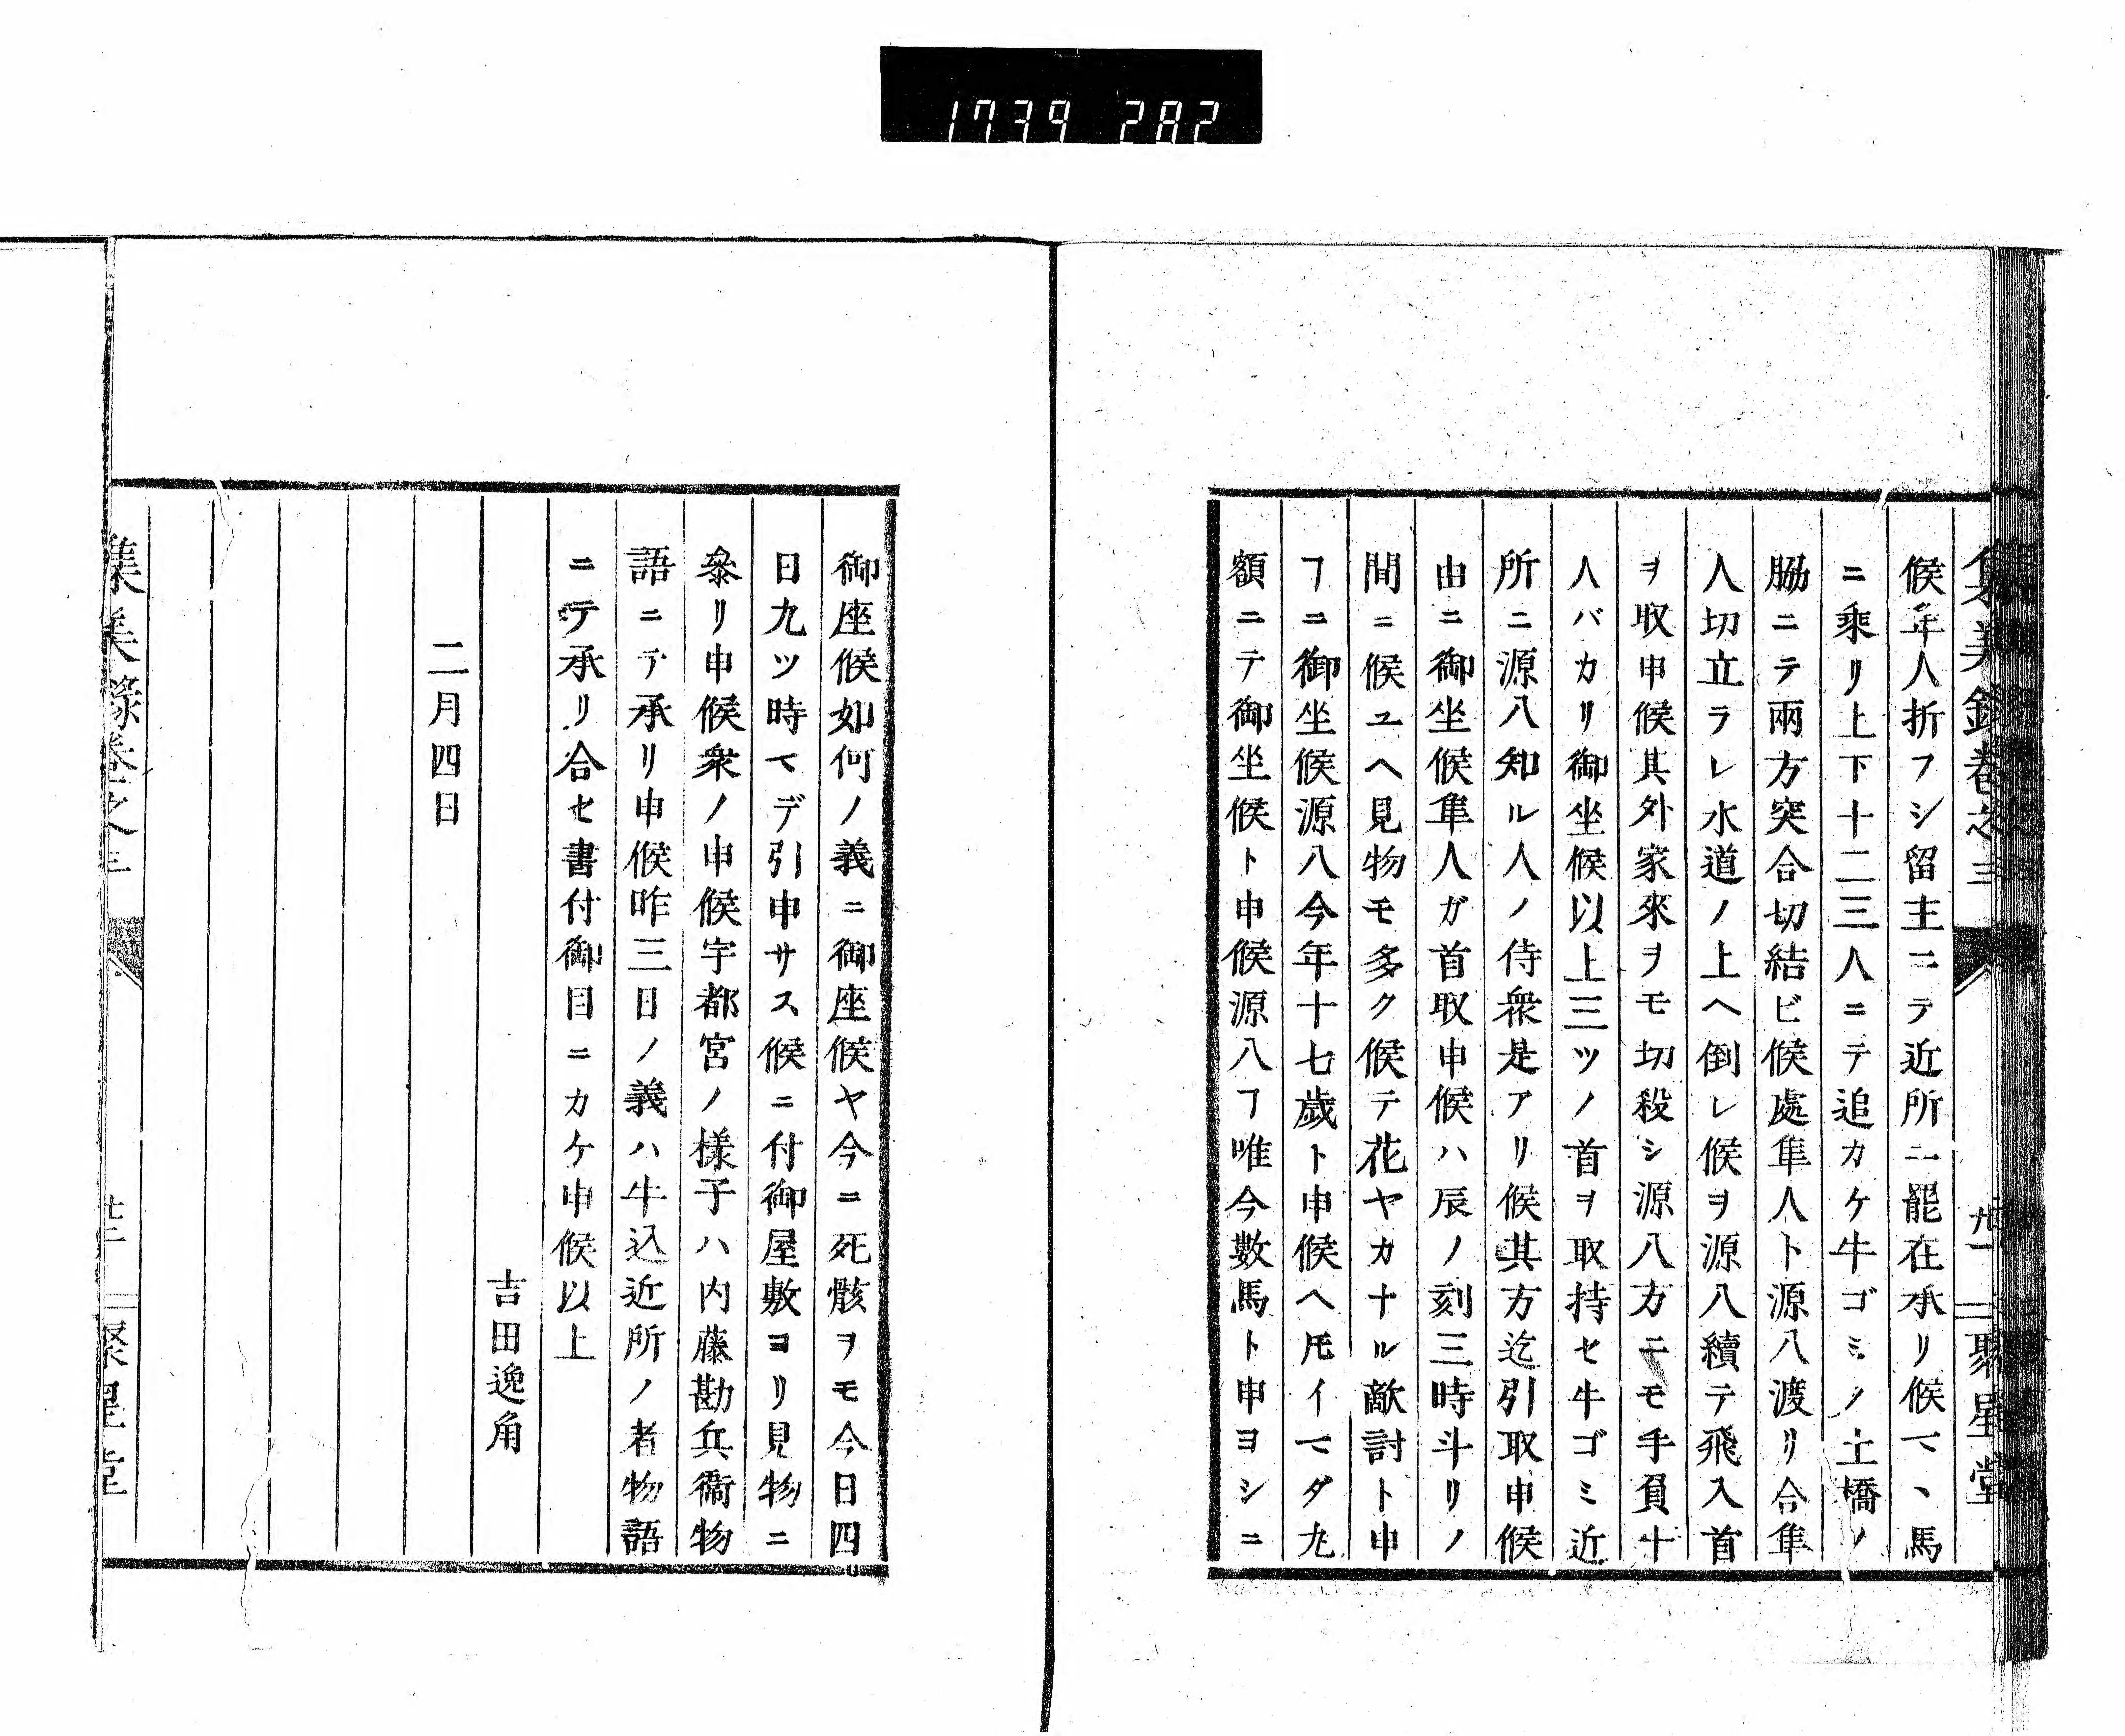 1739 282
集義錄卷之三
聚星堂
候年人折フシ留主ニテ近所ニ罷在承リ候マヽ馬
ニ乘リ上下十二三人ニテ追カケ牛ゴミノ土橋ノ
脇ニテ兩方突合切結ビ候處隼人ト源八渡リ合隼
人切立ラレ水道ノ上ヘ倒レ候ヲ源八續テ飛入首
ヲ取申候其外家來ヲモ切殺シ源八方ニモ手負十
人バカリ御坐候以上三ツノ首ヲ取持セ牛ゴミ近
所ニ源八知ル人ノ侍衆是アリ候其方迄引取申候
由ニ御坐候隼人ガ首取申候ハ辰ノ刻三時斗リノ
間ニ候ユヘ見物モ多ク候テ花ヤカナル敵討ト申
ヿニ御坐候源八今年十七歲ト申候ヘ𪜈イマダ九
額ニテ御坐候ト申候源八ヿ唯今數馬ト申ヨシニ
御座候如何ノ義ニ御座候ヤ今ニ死骸ヲモ今日四
日九ツ時マデ引申サス候ニ付御屋敷ヨリ見物ニ
叅リ申候衆ノ申候宇都宮ノ樣子ハ内藤勘兵衞物
語ニテ承リ申候昨三日ノ義ハ牛込近所ノ者物語
ニテ承リ合セ書付御目ニカケ申候以上
吉田逸角
二月四日
集義錄卷之三
聚星堂